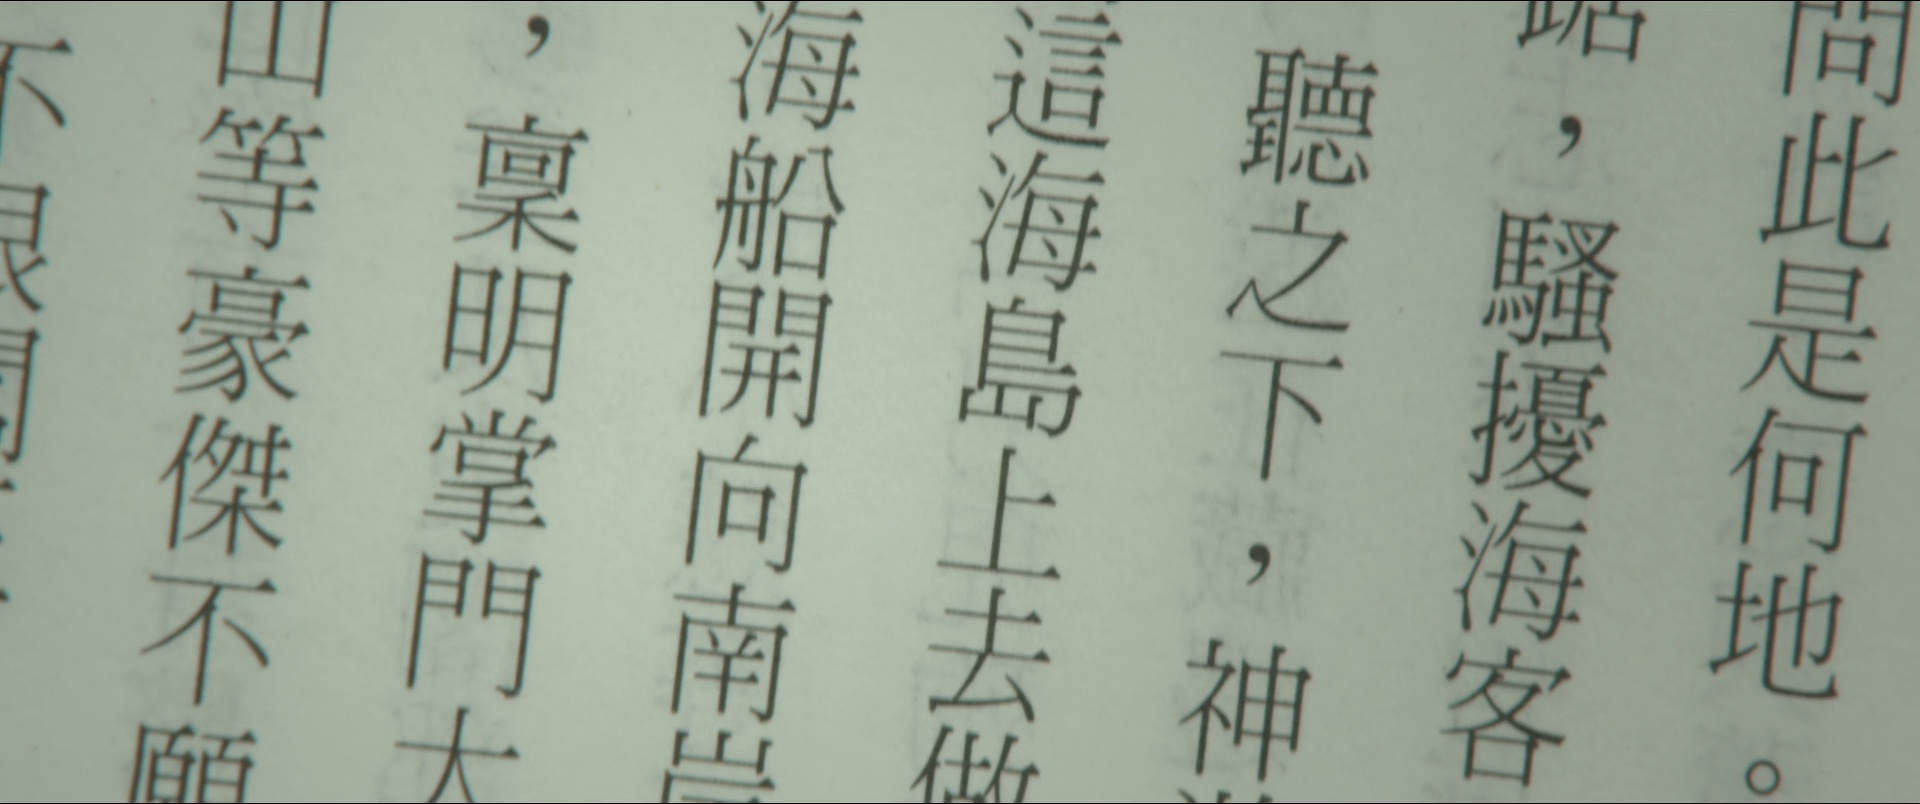 問此是何地。
踞，騷擾海客
聽之下，神
這海島上去做
海船開向南岸
，稟明掌門大
山等豪傑不願
不